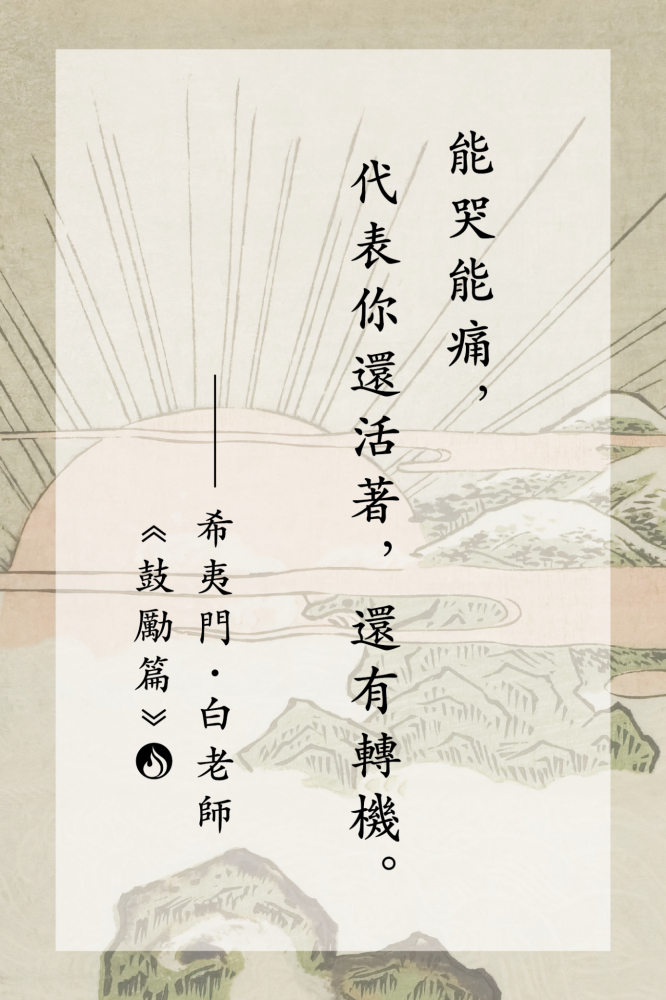 能哭能痛，
代表你還活著，還有轉機。
——希夷門·白老師
《鼓勵篇》